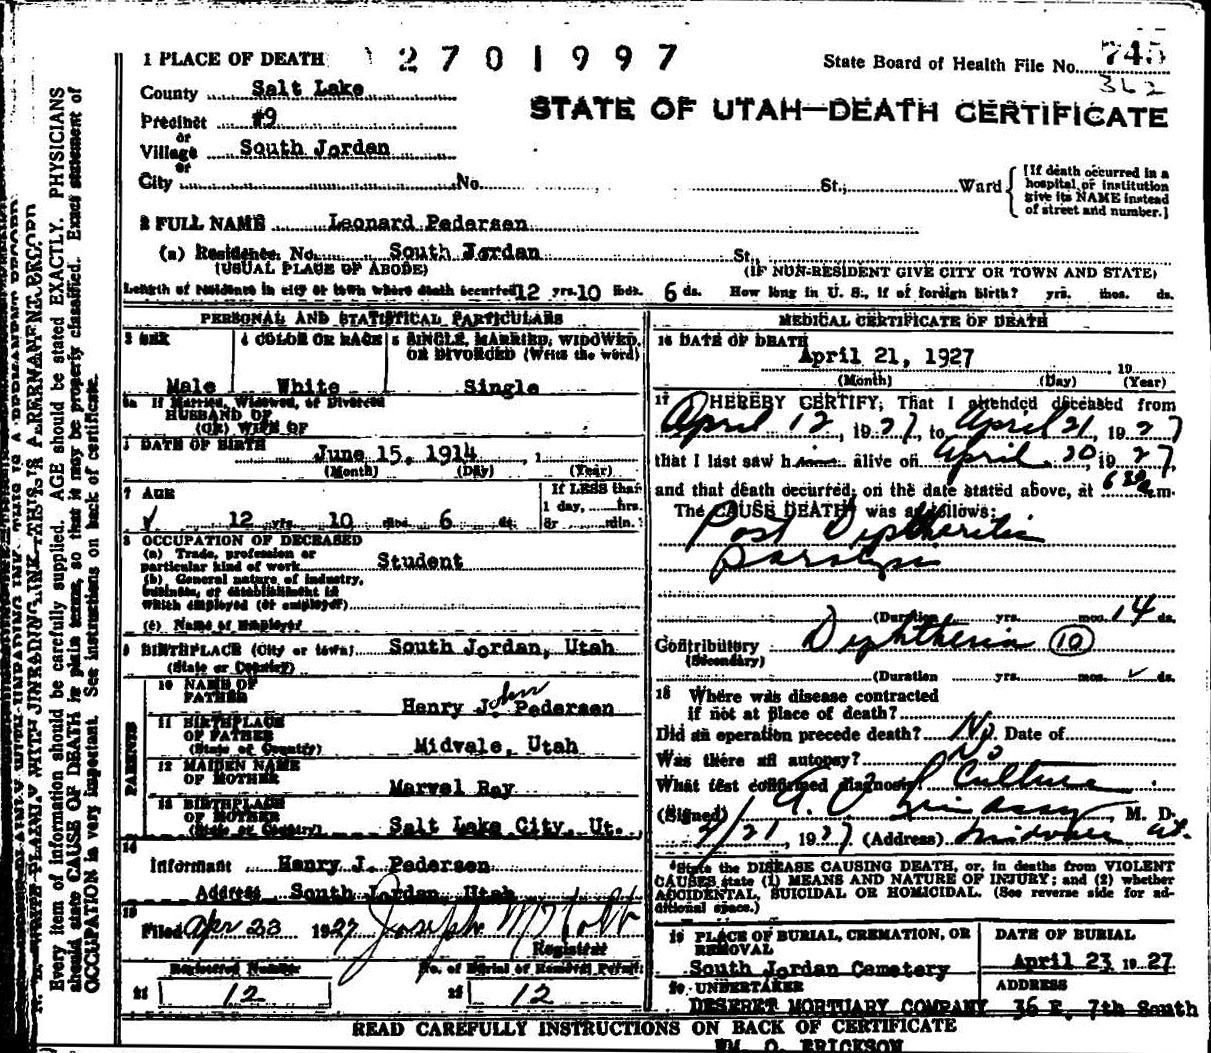 1 PLACE OF DEATH 2 7 0 1 9 9 7
State Board of Health File No. 745
362
STATE OF UTAH—DEATH CERTIFICATE
County Salt Lake
Precinct #9
or
Village South Jordan
or
City No. St.; Ward
[If death occurred in a
hospital or institution
give its NAME instead
of street and number.]
2 FULL NAME Leonard Pedersen
(a) Residence. No. South Jordan St.
(USUAL PLACE OF ABODE) (IF NON-RESIDENT GIVE CITY OR TOWN AND STATE)
Length of residence in city or town where death occurred 12 yrs. 10 mos. 6 ds. How long in U. S., if of foreign birth? yrs. mos. ds.
PERSONAL AND STATISTICAL PARTICULARS
3 SEX
Male
4 COLOR OR RACE
White
5 SINGLE, MARRIED, WIDOWED,
OR DIVORCED (Write the word)
Single
5a If Married, Widowed, or Divorced
HUSBAND OF
(OR) WIFE OF
DATE OF BIRTH June 15, 1914 , 1
(Month) (Day) (Year)
7 AGE
12 yrs. 10 mos. 6 ds.
If LESS than
1 day, hrs.
or min.
8 OCCUPATION OF DECEASED
(a) Trade, profession or
particular kind of work Student
(b) General nature of industry,
business, or establishment in
which employed (or employer)
(c) Name of Employer
9 BIRTHPLACE (City or town) South Jordan, Utah
(State or Country)
PARENTS
10 NAME OF
FATHER Henry J. Pedersen
John
11 BIRTHPLACE
OF FATHER
(State or Country) Midvale, Utah
12 MAIDEN NAME
OF MOTHER Marvel Ray
13 BIRTHPLACE
OF MOTHER
(State or Country) Salt Lake City, Ut.
14
Informant Henry J. Pedersen
Address South Jordan, Utah
15
Filed Apr 23 1927 Joseph M Holt
Registrar
Registered Number No. of Burial or Removal Permit
21 12 22 12
MEDICAL CERTIFICATE OF DEATH
16 DATE OF DEATH
April 21, 1927 , 19
(Month) (Day) (Year)
17 I HEREBY CERTIFY, That I attended deceased from
April 12, 1927, to April 21, 1927
that I last saw him alive on April 20, 1927,
and that death occurred, on the date stated above, at 630 a.m.
The CAUSE DEATH was as follows:
Post Diptheritic
Paralysis
(Duration yrs. mos. 14 ds.
Contributory Diphtheria 10
(Secondary)
(Duration yrs. mos. ds.
18 Where was disease contracted
if not at place of death?
Did an operation precede death? No Date of
Was there an autopsy? No
What test confirmed diagnosis? Culture
(Signed) M. D.
4/21, 1927 (Address) Midvale Ut.
*State the DISEASE CAUSING DEATH, or, in deaths from VIOLENT
CAUSES state (1) MEANS AND NATURE OF INJURY; and (2) whether
ACCIDENTAL, SUICIDAL OR HOMICIDAL. (See reverse side for ad-
ditional space.)
19 PLACE OF BURIAL, CREMATION, OR
REMOVAL
South Jordan Cemetery
DATE OF BURIAL
April 23 1927
20 UNDERTAKER
DESERET MORTUARY COMPANY
ADDRESS
36 E. 7th South
READ CAREFULLY INSTRUCTIONS ON BACK OF CERTIFICATE
WM. O. ERICKSON
Every item of information should be carefully supplied. AGE should be stated EXACTLY. PHYSICIANS
should state CAUSE OF DEATH in plain terms, so that it may be properly classified. Exact statement of
OCCUPATION is very important. See instructions on back of certificate.